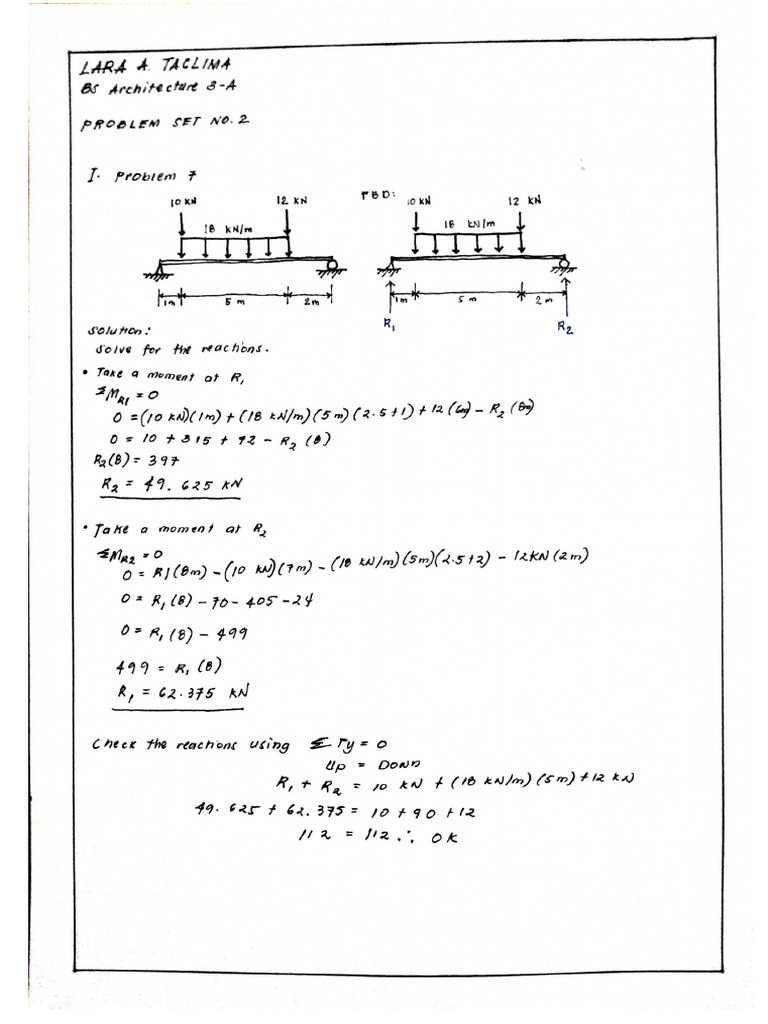 LARA A. TACLIMA
BS Architecture 3-A
PROBLEM SET NO. 2
I. Problem 7
10 KN 12 KN
18 KN/m
1m 5 m 2m
FBD:
10 KN 12 KN
18 KN/m
1m 5 m 2 m
R₁ R₂
Solution:
Solve for the reactions.
• Take a moment at R₁
ΣM_R1 = 0
0 = (10 KN)(1m) + (18 KN/m)(5m)(2.5+1) + 12(6m) - R₂(8m)
0 = 10 + 315 + 72 - R₂ (8)
R₂(8) = 397
R₂ = 49.625 KN
• Take a moment at R₂
ΣM_R2 = 0
0 = R1(8m) - (10 KN)(7m) - (18 KN/m)(5m)(2.5+2) - 12KN(2m)
0 = R₁(8) - 70 - 405 - 24
0 = R₁(8) - 499
499 = R₁(8)
R₁ = 62.375 KN
Check the reactions using ΣFy = 0
Up = Down
R₁ + R₂ = 10 KN + (18 KN/m)(5m) + 12 KN
49.625 + 62.375 = 10 + 90 + 12
112 = 112 ∴ OK